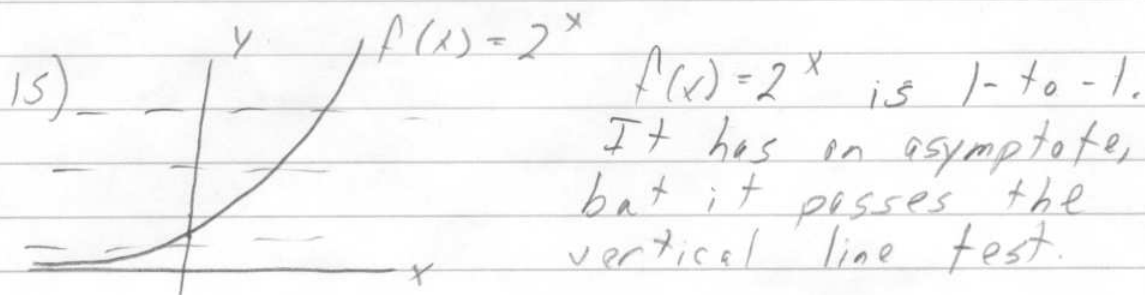 y
f(x) = 2^x
15)
f(x) = 2^x is 1-to-1.
It has an asymptote,
but it passes the
vertical line test.
x